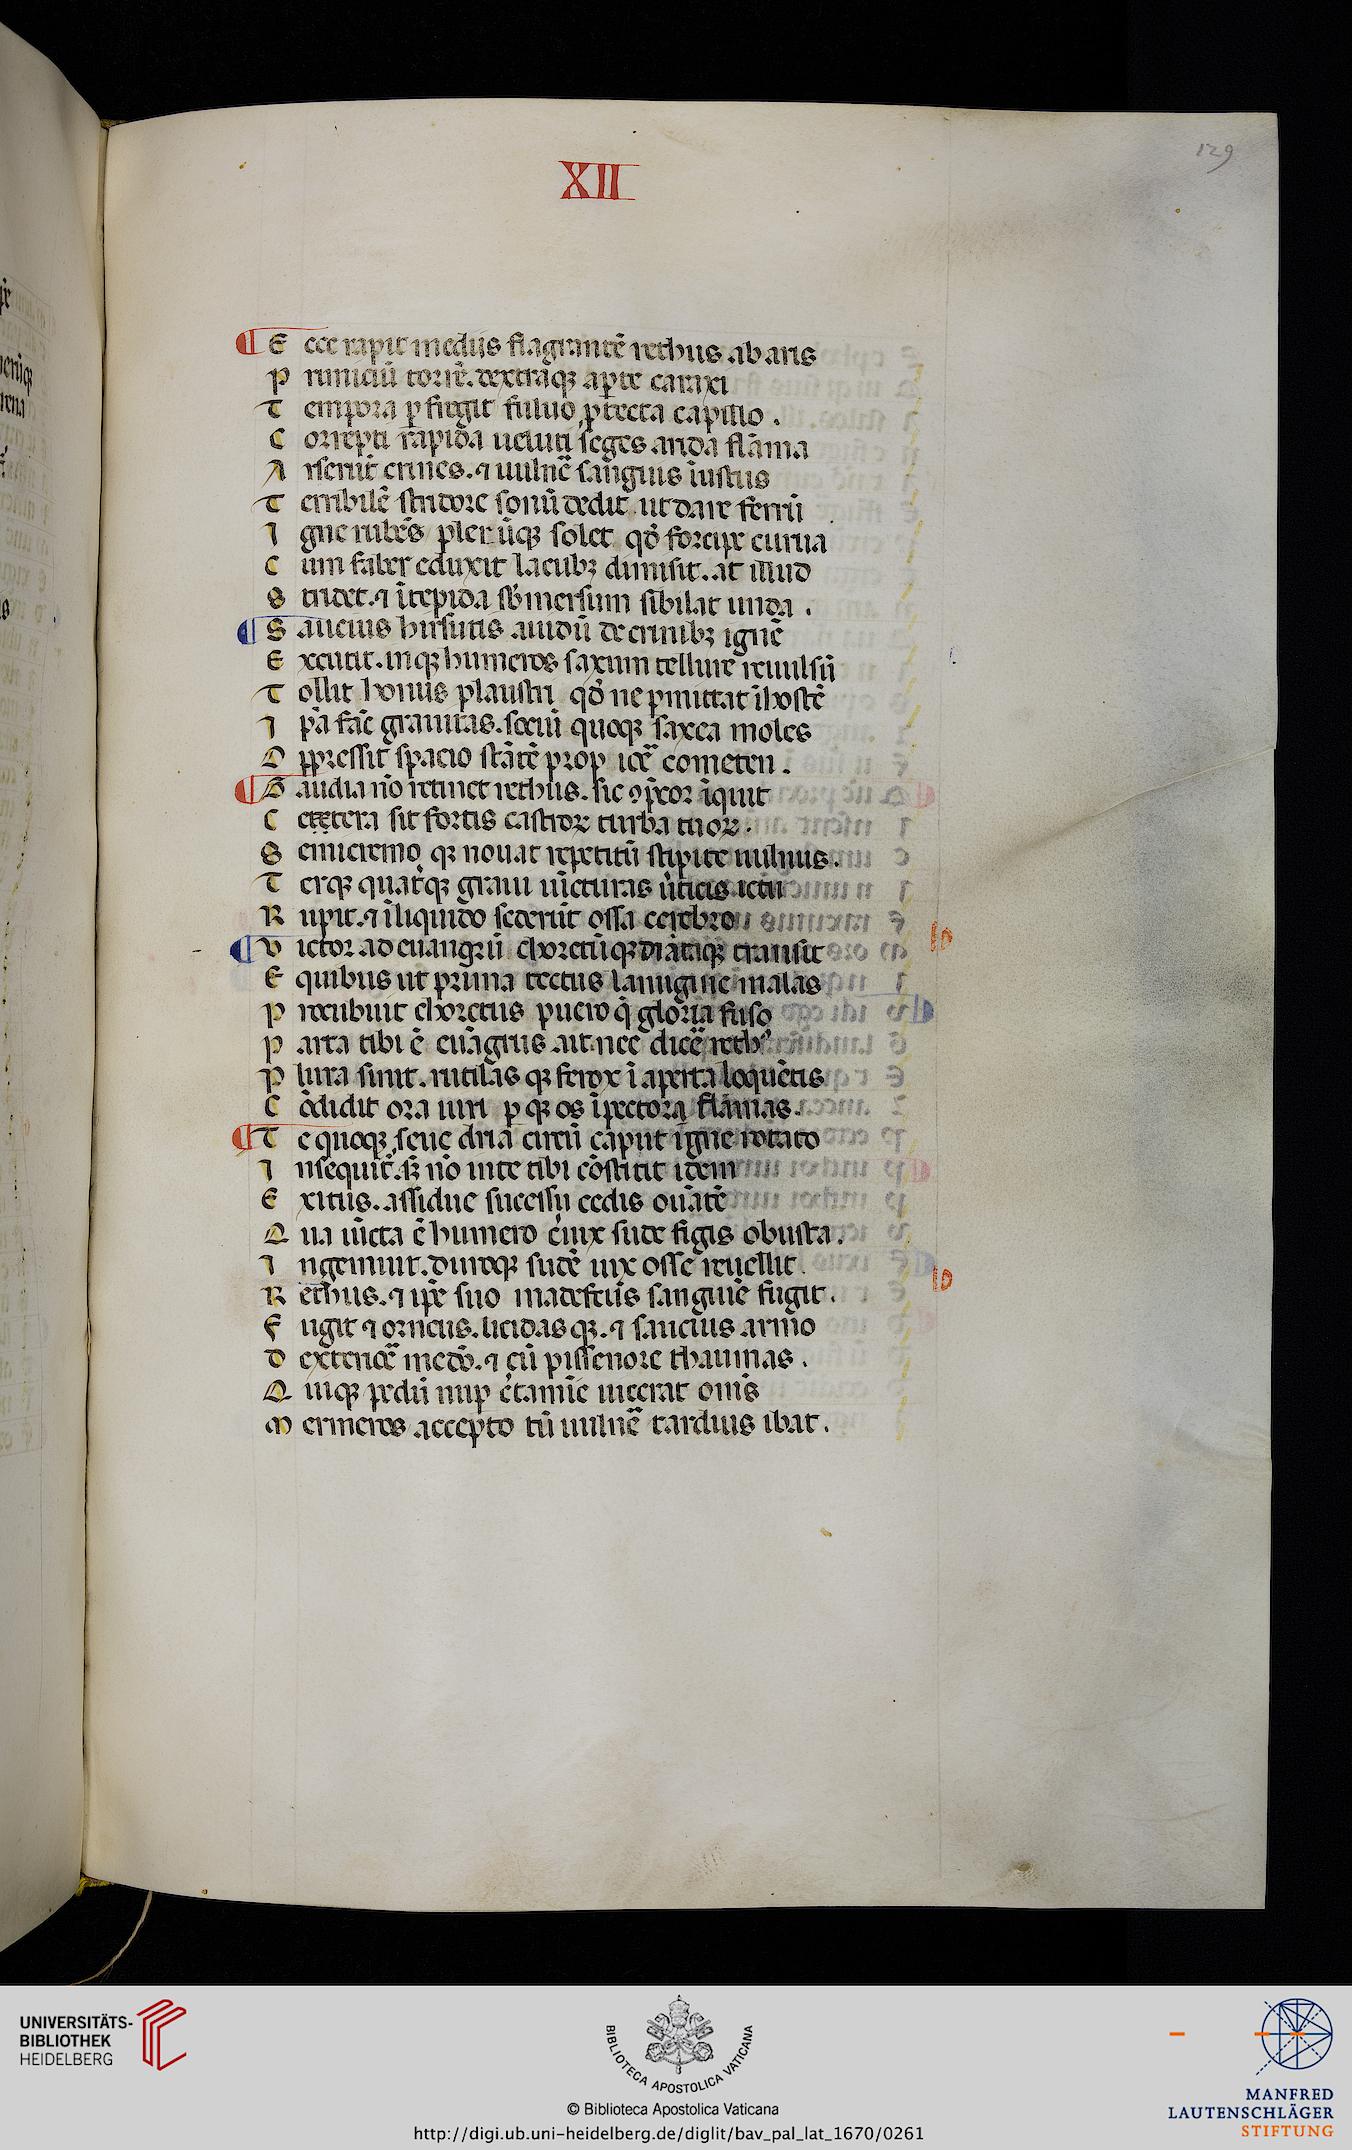 129
XII
Ecce rapit mediis flagrantē rethus ab aris
Pruniciū torrē. dextraqꝫ a ꝑte caraxi
Tempora ꝑfregit fuluo ꝓtecta capillo .
Correpti rapida ueluti seges arida flāma
Arserūt crines. ⁊ uulnē sanguis īustus
Terribilē stridore sonū dedit. ut dare ferrū
Igne rubēs plerūqꝫ solet qđ forcipe curua
Cum faber eduxit lacubꝫ dimisit. at illud
Stridet. ⁊ ī tepida sƀmersum sibilat unda .
Saucius hirsutis auidū de crinibꝫ ignē
Excutit. inqꝫ humeros saxum tellure reuulsū
Tollit honus plaustri qđ ne ꝑmittat ī hostē
Ipā facͥ grauitas. sociū quoqꝫ saxea moles
Oppressit spacio stātē propiorē cometen .
Gaudia nō retinet rethus. sic ꝯprecor inquit
Cetera sit fortis castroꝝ turba tuoꝝ .
Semicremo qꝫ nouat repetitū stipite uulnus .
Terqꝫ quaterqꝫ graui iūcturas uerticis ictu
Rupit. ⁊ ī liquido sederūt ossa cerebro
Victor ad euangrū choretūqꝫ driātaqꝫ transit
E quibus ut prima tectus lanugine malas
Procubuit choretus puero q̄ gloria fuso
Parta tibi ē euāgrus ait. nec dicē̄ rethꝰ
Plura sinit. rutilas qꝫ ferox ī aperta loquētis
Cōdidit ora uiri ꝑ qꝫ os ī pectora flāmas.
Te quoqꝫ seue driā circū caput igne rotato
Insequit᷑. sꝫ nō in te tibi cōstitit idem
Exitus. assidue successu cedis ouātē
Qua iūcta ē humero ceruix sude figis obusta .
Ingemuit. duroqꝫ sudē uix osse reuellit
Rethus. ⁊ ipē suo madefctūs sanguine fugit .
Fugit ⁊ orneus. licidas qꝫ. ⁊ saucius armo
Dexteriorē medō. ⁊ cū pissenore thaumas .
Quiqꝫ pedū nuꝑ certamīe uicerat om̄s
Mermeros accepto tū uulnē tardius ibat .
UNIVERSITÄTS-
BIBLIOTHEK
HEIDELBERG
BIBLIOTECA APOSTOLICA VATICANA
© Biblioteca Apostolica Vaticana
http://digi.ub.uni-heidelberg.de/diglit/bav_pal_lat_1670/0261
MANFRED
LAUTENSCHLÄGER
STIFTUNG